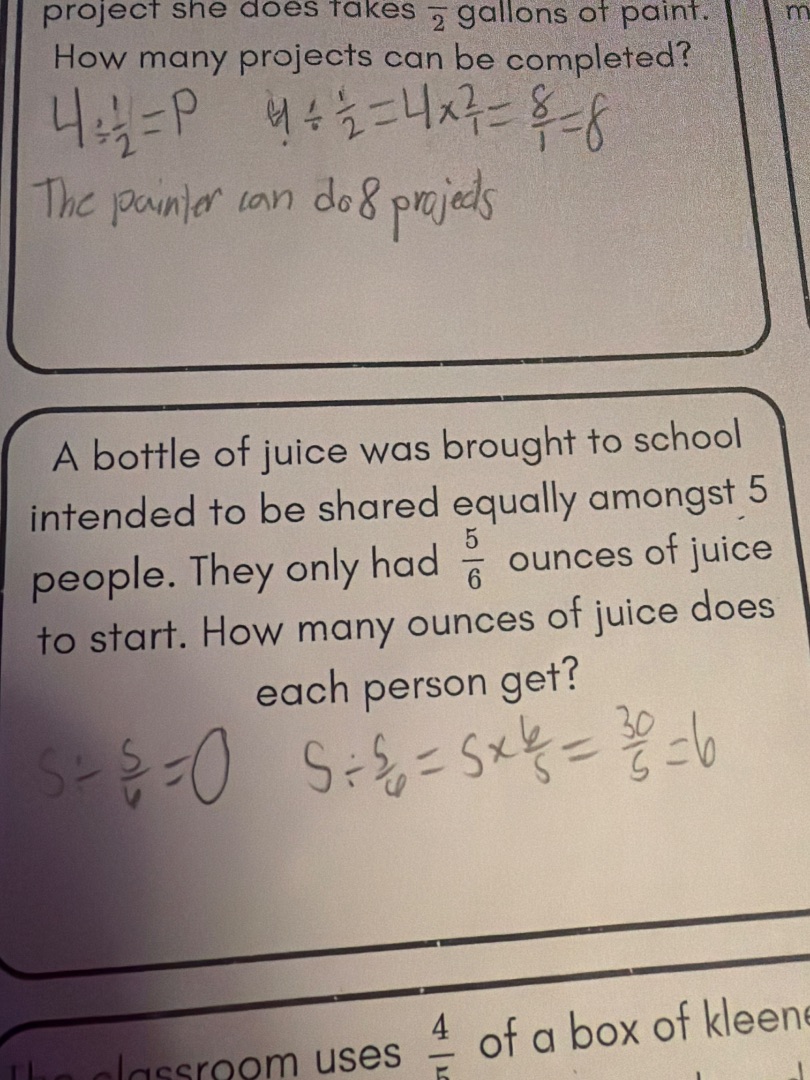 project she does takes 1/2 gallons of paint.
How many projects can be completed?
4 ÷ 1/2 = P 4 ÷ 1/2 = 4 × 2/1 = 8/1 = 8
The painter can do 8 projects
A bottle of juice was brought to school
intended to be shared equally amongst 5
people. They only had 5/6 ounces of juice
to start. How many ounces of juice does
each person get?
5 ÷ 5/6 = O 5 ÷ 5/6 = 5 × 6/5 = 30/5 = 6
classroom uses 4/5 of a box of kleene